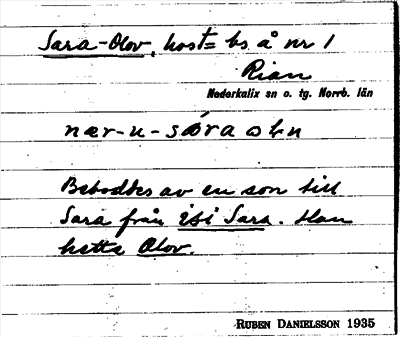 Sara-Olov, host= bs å nr 1
Rian
Nederkalix sn o. tg. Norrb. län
Beboddes av en son till
Sara från isi Sara. Han
hette Olov.
RUBEN DANIELSSON 1935